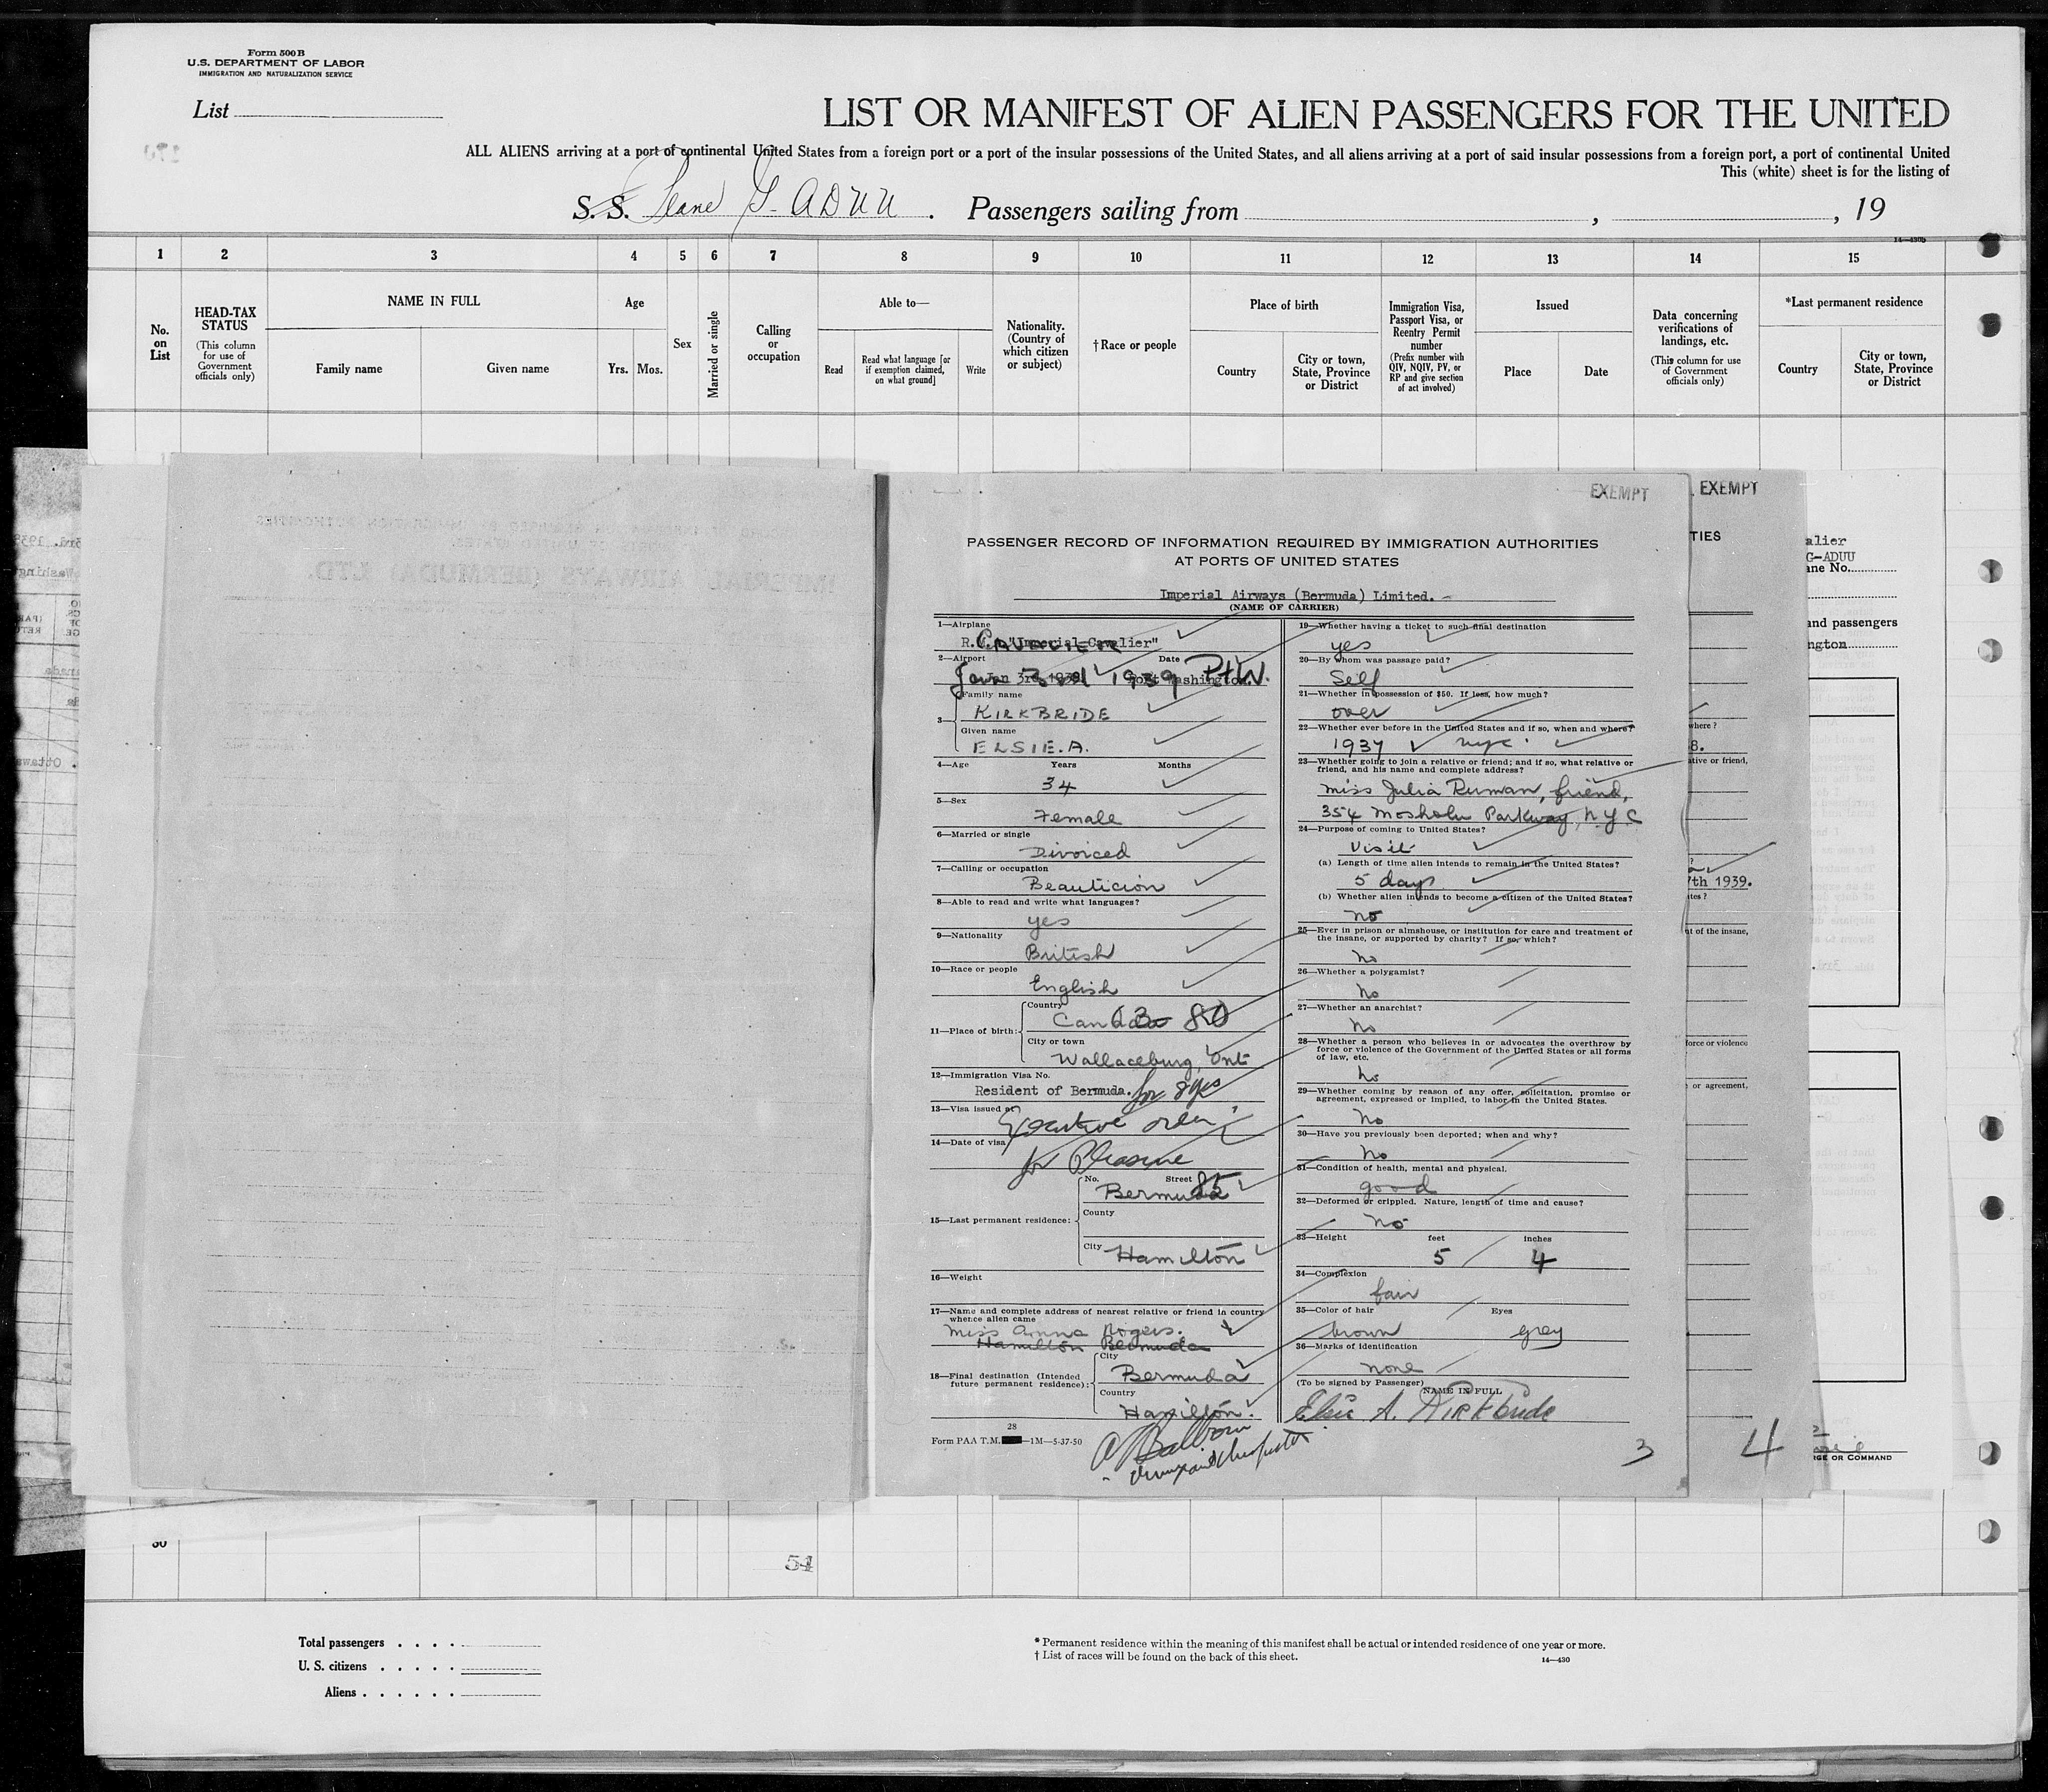 Form 500 B
U.S. DEPARTMENT OF LABOR
IMMIGRATION AND NATURALIZATION SERVICE
List
LIST OR MANIFEST OF ALIEN PASSENGERS FOR THE UNITED
ALL ALIENS arriving at a port of continental United States from a foreign port or a port of the insular possessions of the United States, and all aliens arriving at a port of said insular possessions from a foreign port, a port of continental United
This (white) sheet is for the listing of
S. S. Plane G-ADUU . Passengers sailing from , , 19
14—430b
1 2 3 4 5 6 7 8 9 10 11 12 13 14 15
No. on List
HEAD-TAX STATUS
(This column for use of Government officials only)
NAME IN FULL
Family name
Given name
Age
Yrs. Mos.
Sex
Married or single
Calling or occupation
Able to—
Read
Read what language [or if exemption claimed, on what ground]
Write
Nationality. (Country of which citizen or subject)
†Race or people
Place of birth
Country
City or town, State, Province or District
Immigration Visa, Passport Visa, or Reentry Permit number
(Prefix number with QIV, NQIV, PV, or RP and give section of act involved)
Issued
Place
Date
Data concerning verifications of landings, etc.
(This column for use of Government officials only)
*Last permanent residence
Country
City or town, State, Province or District
EXEMPT
EXEMPT
PASSENGER RECORD OF INFORMATION REQUIRED BY IMMIGRATION AUTHORITIES
AT PORTS OF UNITED STATES
Imperial Airways (Bermuda) Limited.
(NAME OF CARRIER)
1—Airplane
CAVALIER
2—Airport Date
Jan 3rd 1939 Pt W.
3
Family name
KIRKBRIDE
Given name
ELSIE.A.
4—Age Years Months
34
5—Sex
Female
6—Married or single
Divorced
7—Calling or occupation
Beautician
8—Able to read and write what languages?
yes
9—Nationality
British
10—Race or people
English
11—Place of birth:
Country
Canada 80
City or town
Wallaceburg, Ont
12—Immigration Visa No.
Resident of Bermuda. for 8 yrs
13—Visa issued at
Executive order
14—Date of visa
for Pleasure
15—Last permanent residence:
No. Street
Bermuda 85
County
City
Hamilton
16—Weight
17—Name and complete address of nearest relative or friend in country
whence alien came
Miss Anna Rogers.
Hamilton Bermuda
18—Final destination (Intended
future permanent residence):
City
Bermuda
Country
Hamilton.
28
Form PAA T.M. —1M—5-37-50
19—Whether having a ticket to such final destination
yes
20—By whom was passage paid?
Self
21—Whether in possession of $50. If less, how much?
over
22—Whether ever before in the United States and if so, when and where?
1937 nyc.
23—Whether going to join a relative or friend; and if so, what relative or
friend, and his name and complete address?
Miss Julia Ruman, friend,
354 Mosholu Parkway, N Y C
24—Purpose of coming to United States?
Visit
(a) Length of time alien intends to remain in the United States?
5 days
(b) Whether alien intends to become a citizen of the United States?
no
25—Ever in prison or almshouse, or institution for care and treatment of
the insane, or supported by charity? If so, which?
no
26—Whether a polygamist?
no
27—Whether an anarchist?
no
28—Whether a person who believes in or advocates the overthrow by
force or violence of the Government of the United States or all forms
of law, etc.
no
29—Whether coming by reason of any offer, solicitation, promise or
agreement, expressed or implied, to labor in the United States.
No
30—Have you previously been deported; when and why?
No
31—Condition of health, mental and physical.
good
32—Deformed or crippled. Nature, length of time and cause?
no
33—Height feet inches
5 4
34—Complexion
fair
35—Color of hair Eyes
brown grey
36—Marks of identification
none
(To be signed by Passenger)
NAME IN FULL
Elsie A. Kirkbride
Immigrant Inspector
3
4
TIES
where ?
8.
ative or friend,
7th 1939.
tes ?
nt of the insane,
force or violence
e or agreement,
alier
G-ADUU
ane No.
nd passengers
ington
RGE OR COMMAND
30
54
Total passengers
U. S. citizens
Aliens
* Permanent residence within the meaning of this manifest shall be actual or intended residence of one year or more.
† List of races will be found on the back of this sheet.
14—430